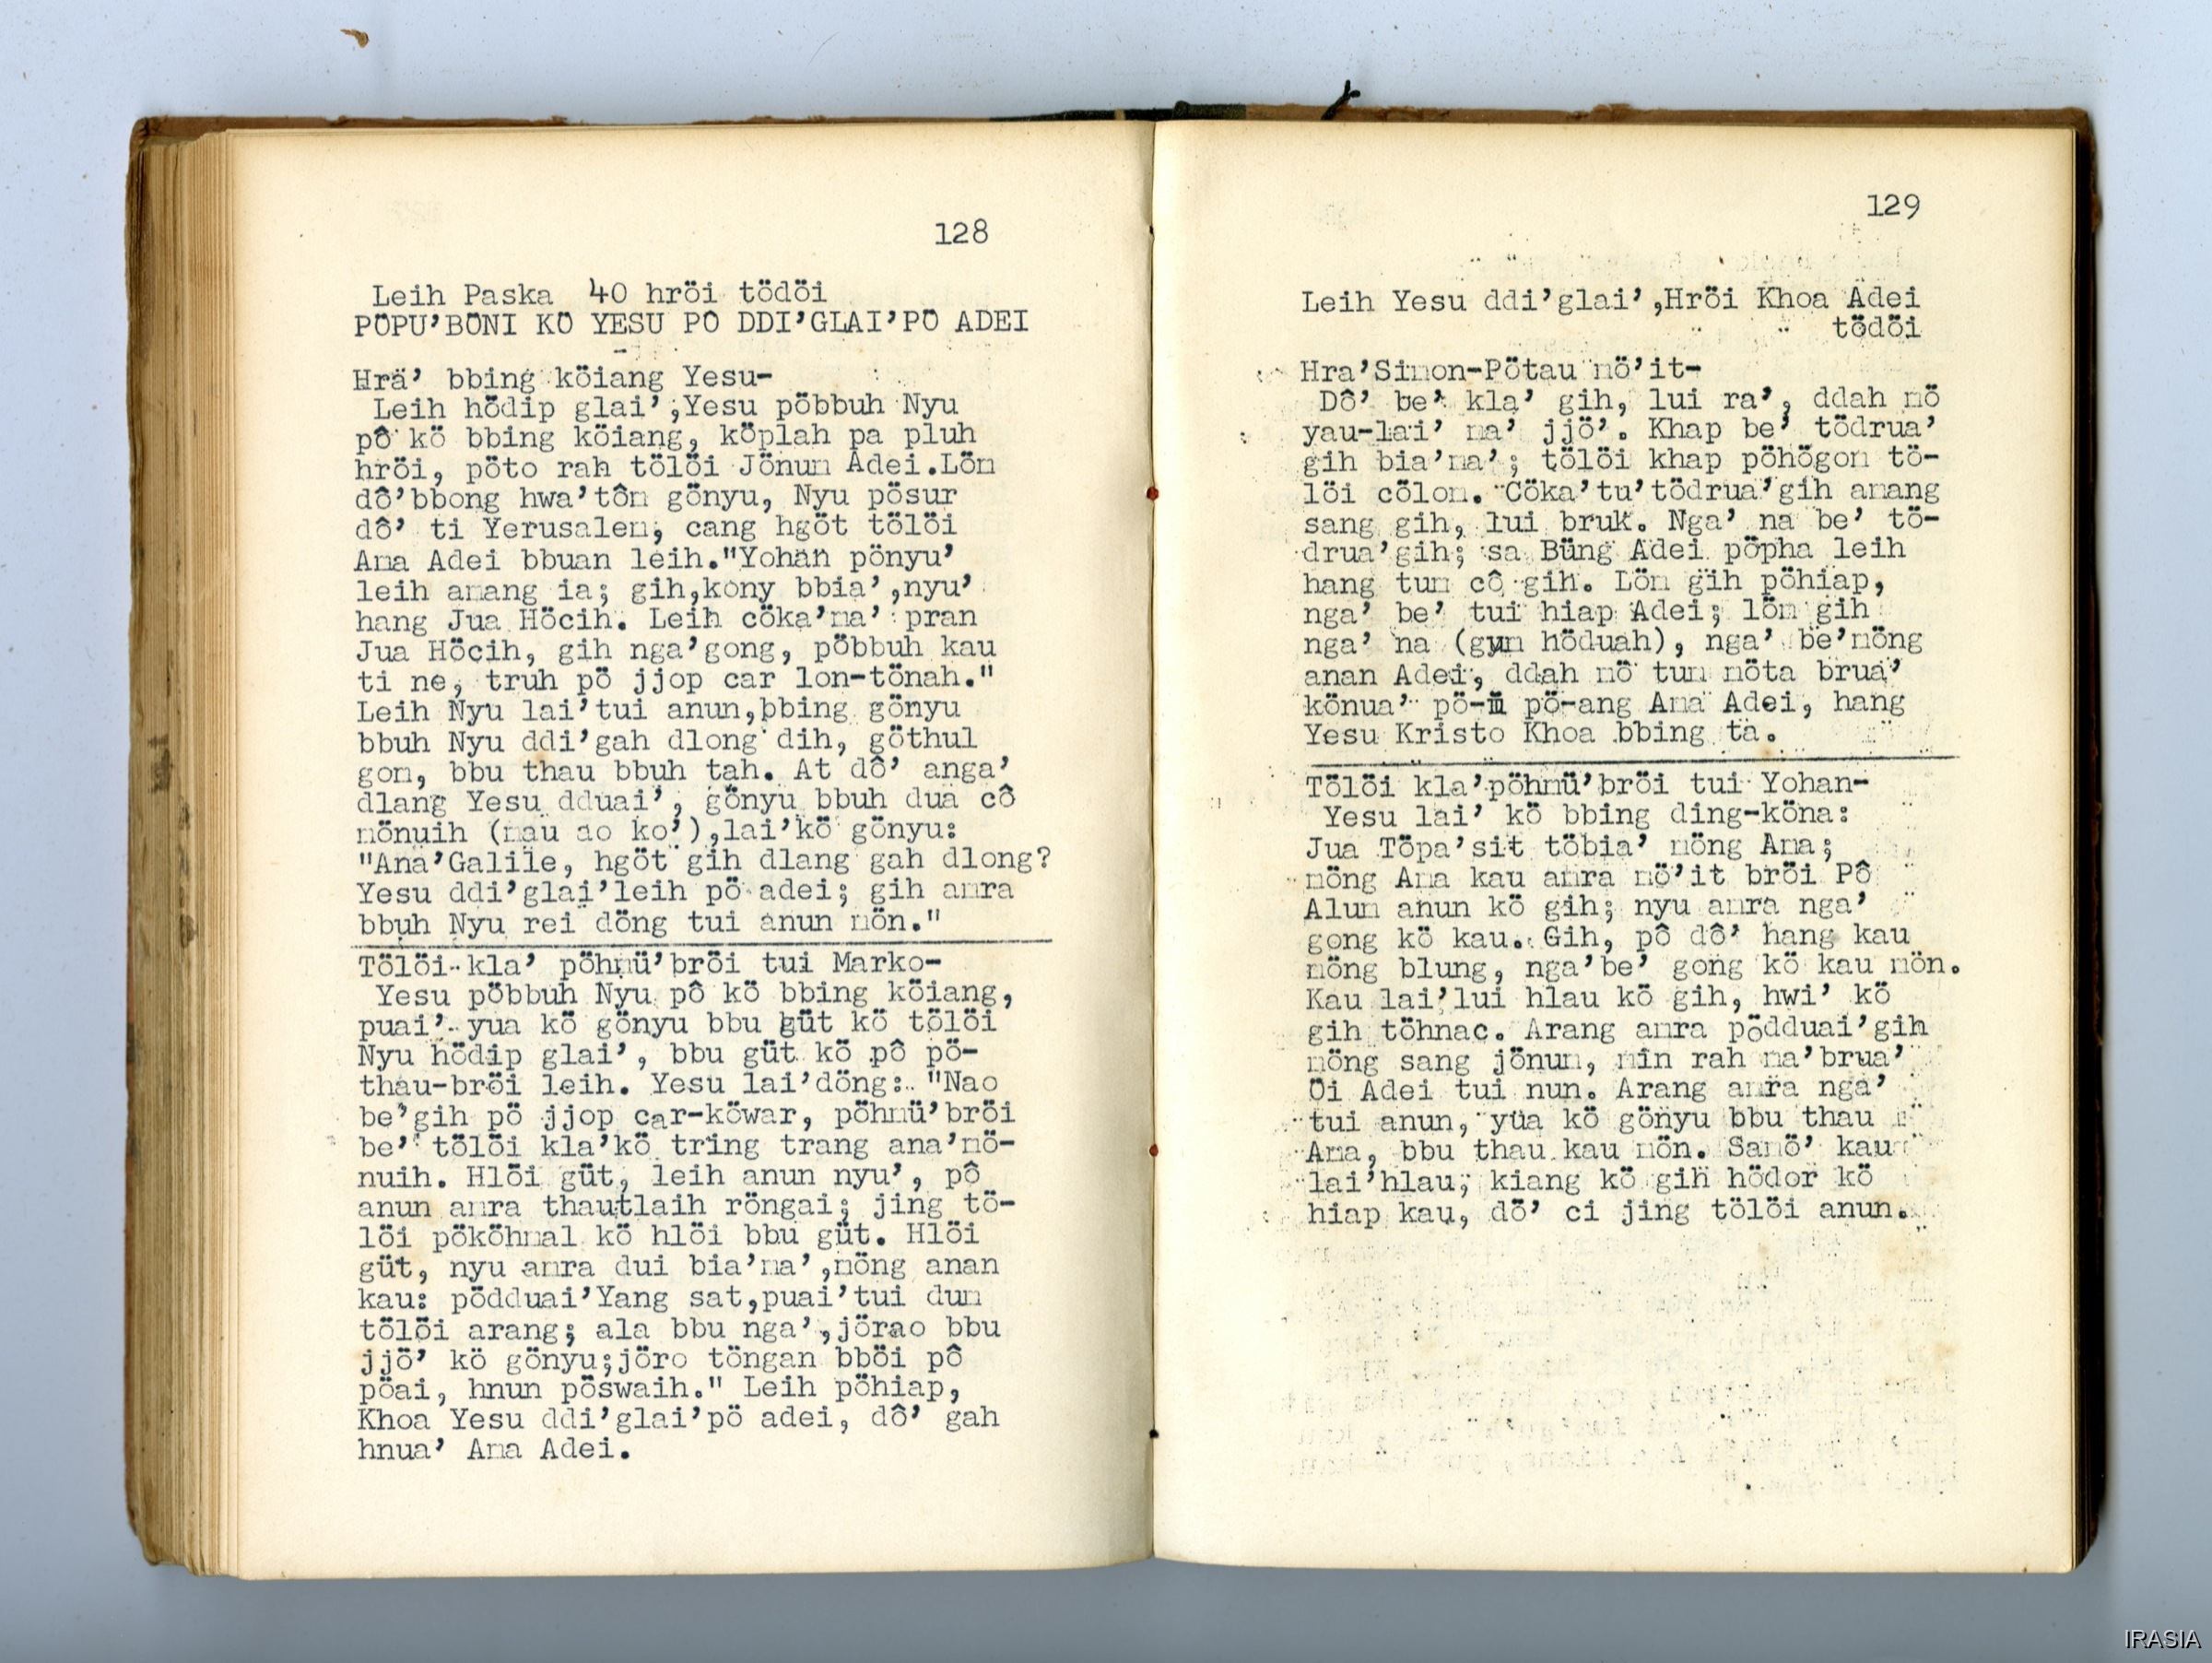 128
Leih Paska 40 hröi tödöi
PÖPU’BÖNI KÖ YESU PÔ DDI’GLAI’PÖ ADEI
Hrä’ bbing köiang Yesu-
Leih hödip glai’,Yesu pöbbuh Nyu
pô kö bbing köiang, köplah pa pluh
hröi, pöto rah tölöi Jönum Adei.Löm
dô’bbong hwa’tôm gönyu, Nyu pösur
dô’ ti Yerusalem, cang hgöt tölöi
Ama Adei bbuan leih."Yohan pönyu’
leih amang ia; gih,kony bbia’,nyu’
hang Jua Höcih. Leih cöka’ma’ pran
Jua Höcih, gih nga’gong, pöbbuh kau
ti ne, truh pö jjop car lon-tönah."
Leih Nyu lai’tui anun,bbing gönyu
bbuh Nyu ddi’gah dlong dih, göthul
gom, bbu thau bbuh tah. At dô’ anga’
dlang Yesu dduai’, gönyu bbuh dua cô
mönuih (mau ao ko’),lai’kö gönyu:
"Ana’Galile, hgöt gih dlang gah dlong?
Yesu ddi’glai’leih pö adei; gih amra
bbuh Nyu rei döng tui anun mön."
Tölöi kla’ pöhmü’bröi tui Marko-
Yesu pöbbuh Nyu pô kö bbing köiang,
puai’ yua kö gönyu bbu güt kö tölöi
Nyu hödip glai’, bbu güt kö pô pö-
thau-bröi leih. Yesu lai’döng: "Nao
be’gih pö jjop car-köwar, pöhmü’bröi
be’ tölöi kla’kö tring trang ana’mö-
nuih. Hlöi güt, leih anun nyu’, pô
anun amra thautlaih röngai; jing tö-
löi pököhmal kö hlöi bbu güt. Hlöi
güt, nyu amra dui bia’ma’,möng anan
kau: pödduai’Yang sat,puai’tui dum
tölöi arang; ala bbu nga’,jörao bbu
jjö’ kö gönyu;jöro töngan bböi pô
pöai, hnun pöswaih." Leih pöhiap,
Khoa Yesu ddi’glai’pö adei, dô’ gah
hnua’ Ama Adei.
129
Leih Yesu ddi’glai’,Hröi Khoa Adei
tödöi
Hra’Simon-Pötau mö’it-
Dô’ be’ kla’ gih, lui ra’, ddah mö
yau-lai’ ma’ jjö’. Khap be’ tödrua’
gih bia’ma’; tölöi khap pöhögom tö-
löi cölom. Cöka’tu’tödrua’gih amang
sang gih, lui bruk. Nga’ na be’ tö-
drua’gih; sa Büng Adei pöpha leih
hang tum cô gih. Löm gih pöhiap,
nga’ be’ tui hiap Adei; löm gih
nga’ na (gum höduah), nga’ be’möng
anan Adei, ddah mö tum möta brua’
könua’ pö-m pö-ang Ama Adei, hang
Yesu Kristo Khoa bbing ta.
Tölöi kla’pöhmü’bröi tui Yohan-
Yesu lai’ kö bbing ding-köna:
Jua Töpa’sit töbia’ möng Ama;
möng Ama kau amra mö’it bröi Pô
Alum anun kö gih; nyu amra nga’
gong kö kau. Gih, pô dô’ hang kau
möng blung, nga’be’ gong kö kau mön.
Kau lai’lui hlau kö gih, hwi’ kö
gih töhnac. Arang amra pödduai’gih
möng sang jönum, min rah ma’brua’
Öi Adei tui nun. Arang amra nga’
tui anun, yüa kö gönyu bbu thau
Ama, bbu thau kau mön. Samö’ kau
lai’hlau, kiang kö gih hödor kö
hiap kau, dö’ ci jing tölöi anun.
IRASIA